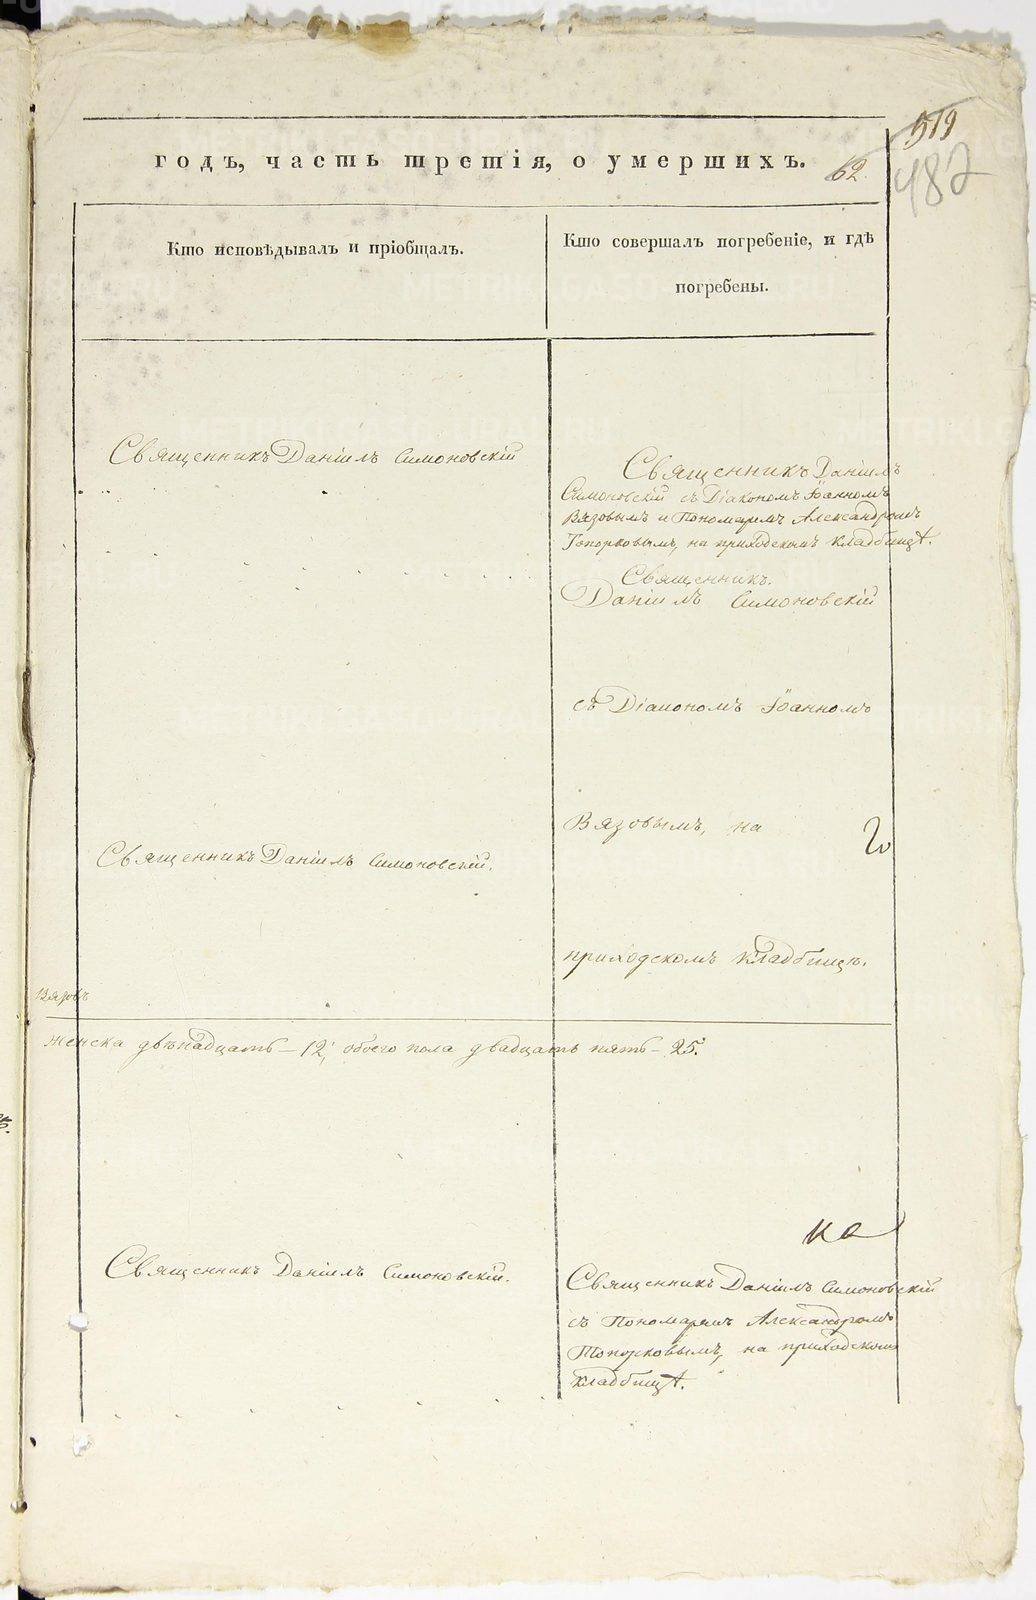 519
годъ, часть третія, о умершихъ.
62.
482
Кто исповѣдывалъ и пріобщалъ.
Кто совершалъ погребеніе, и гдѣ
погребены.
Священникъ Даніилъ Симоновскій
Священникъ Даніилъ
Симоновскій съ Діакономъ Іоанномъ
Вязовымъ и Пономаремъ Александромъ
Топорковымъ, на приходскомъ кладбищѣ.
Священникъ.
Даніилъ Симоновскій
съ Діакономъ Іоанномъ
Вязовымъ, на
Священникъ Даніилъ Симоновскій.
приходскомъ кладбищѣ.
Вязовъ
женска двѣнадцать – 12, обоего пола двадцать пять – 25.
на
Священникъ Даніилъ Симоновскій.
Священникъ Даніилъ Симоновскій
съ Пономаремъ Александромъ
Топорковымъ, на приходскомъ
кладбищѣ.
METRIKI.GASO-URAL.RU